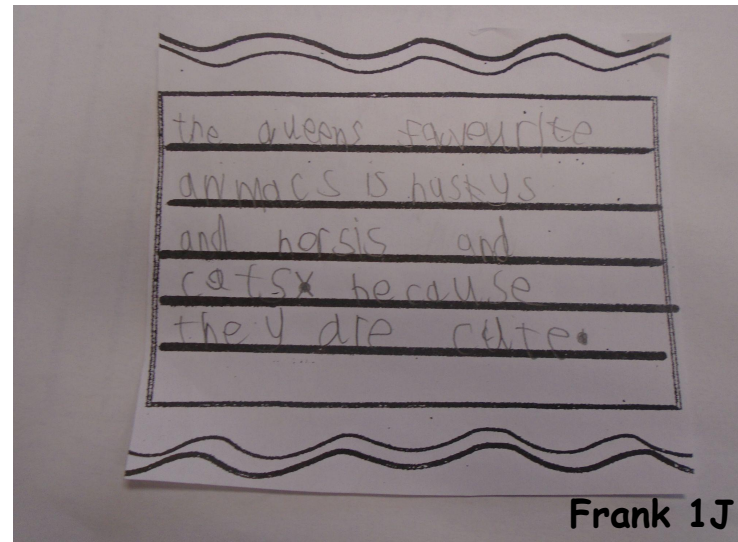 the queens faveurite
anmacs is huskys
and horsis and
cats because
they are cute.
Frank 1J